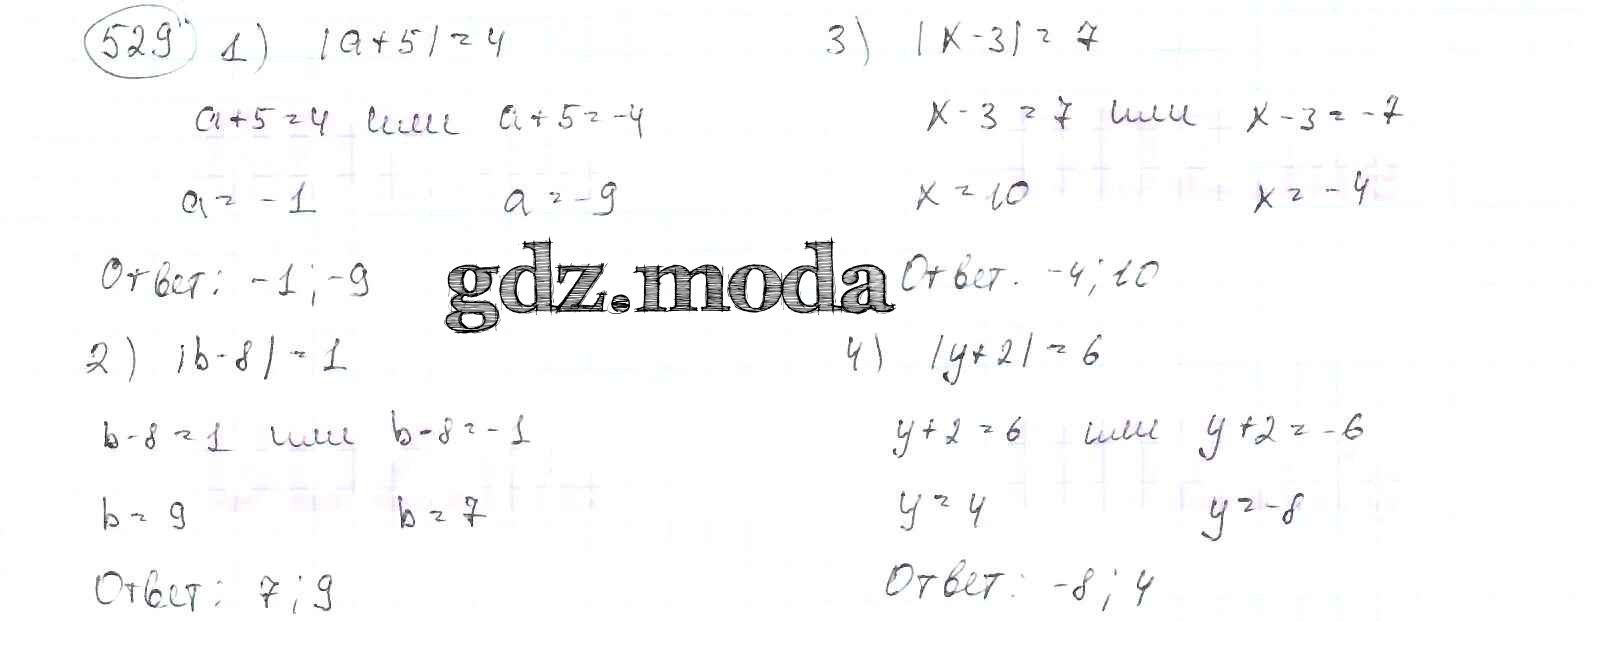 529 1) |a+5|=4
a+5=4 или a+5=-4
a=-1 a=-9
Ответ: -1; -9
2) |b-8|=1
b-8=1 или b-8=-1
b=9 b=7
Ответ: 7; 9
gdz.moda
3) |x-3|=7
x-3=7 или x-3=-7
x=10 x=-4
Ответ. -4; 10
4) |y+2|=6
y+2=6 или y+2=-6
y=4 y=-8
Ответ: -8; 4